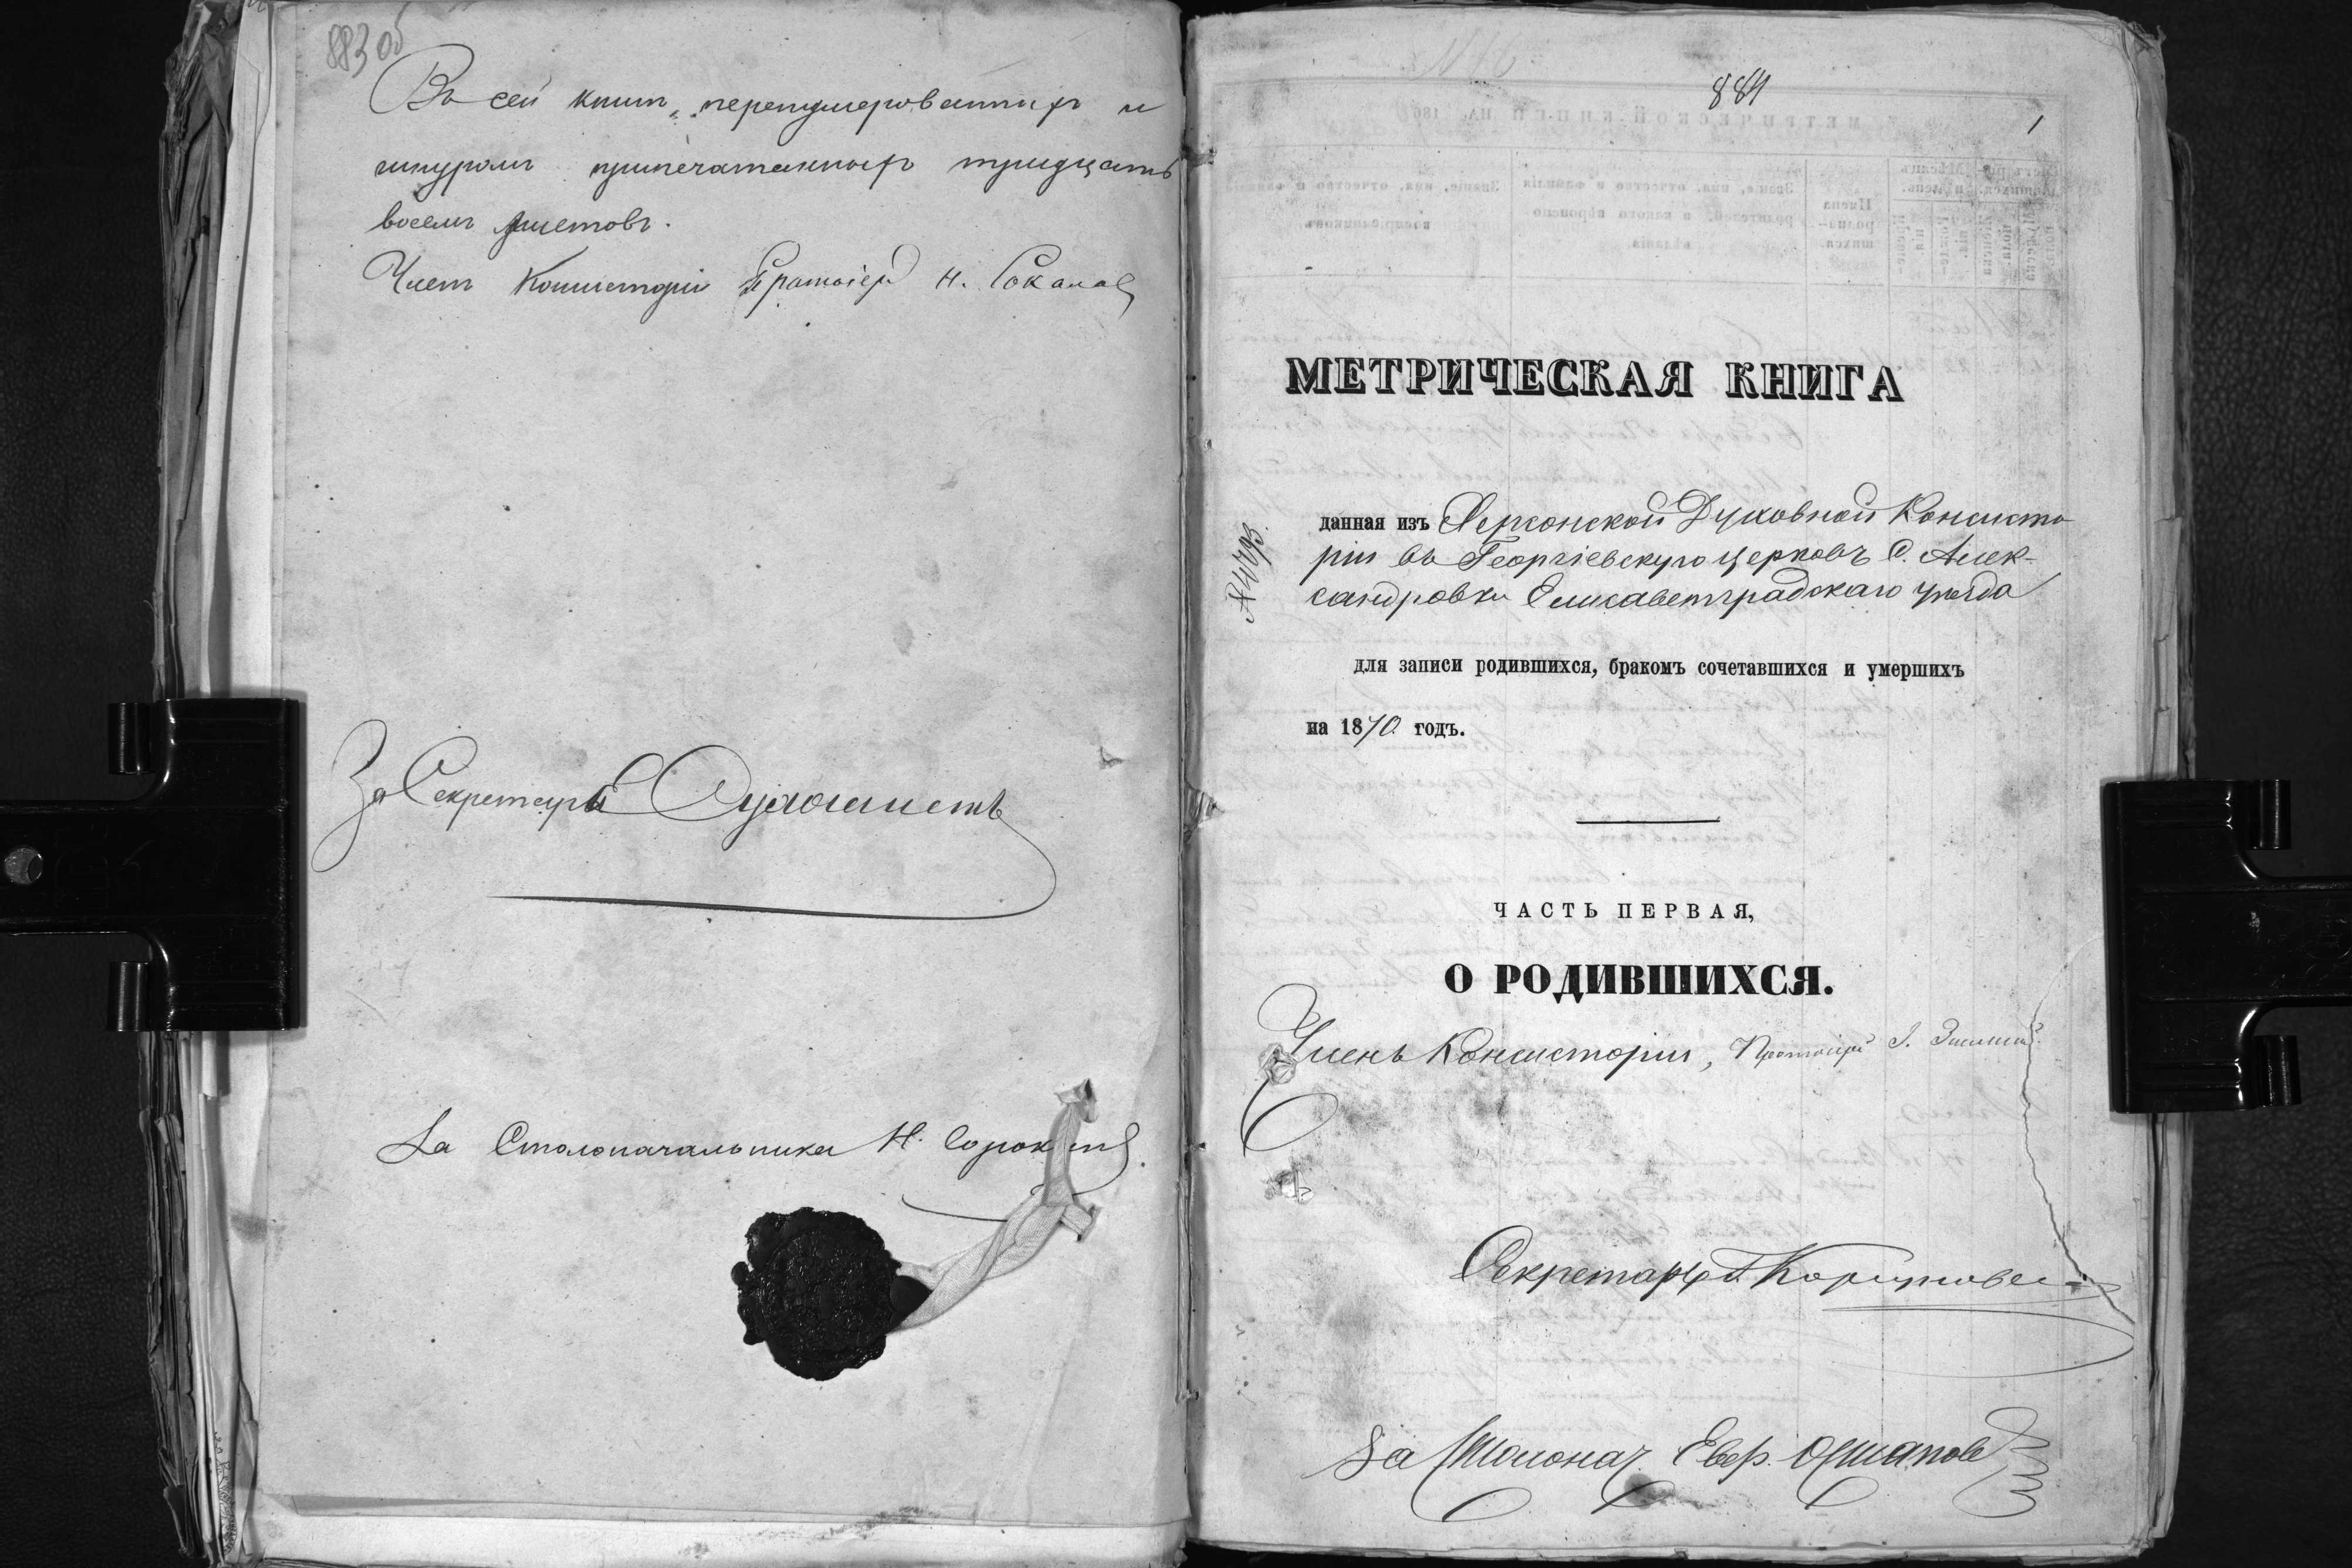 883 об
Въ сей книгѣ перенумерованныхъ и
шнуромъ припечатанныхъ тридцать
восемь листовъ.
Членъ Консисторіи Протоіерей Н. Соколов
За Секретаря
За Столоначальника Н. Сорокинъ.
884
1
МЕТРИЧЕСКАЯ КНИГА
данная изъ Херсонской Духовной Консисто-
ріи въ Георгіевскую церковь С. Алек-
сандровки Елисаветградскаго уѣзда
для записи родившихся, бракомъ сочетавшихся и умершихъ
на 1870 годъ.
ЧАСТЬ ПЕРВАЯ,
О РОДИВШИХСЯ.
Членъ Консисторіи, Протоіерей І.
Секретарь
За Столонач. Евф.